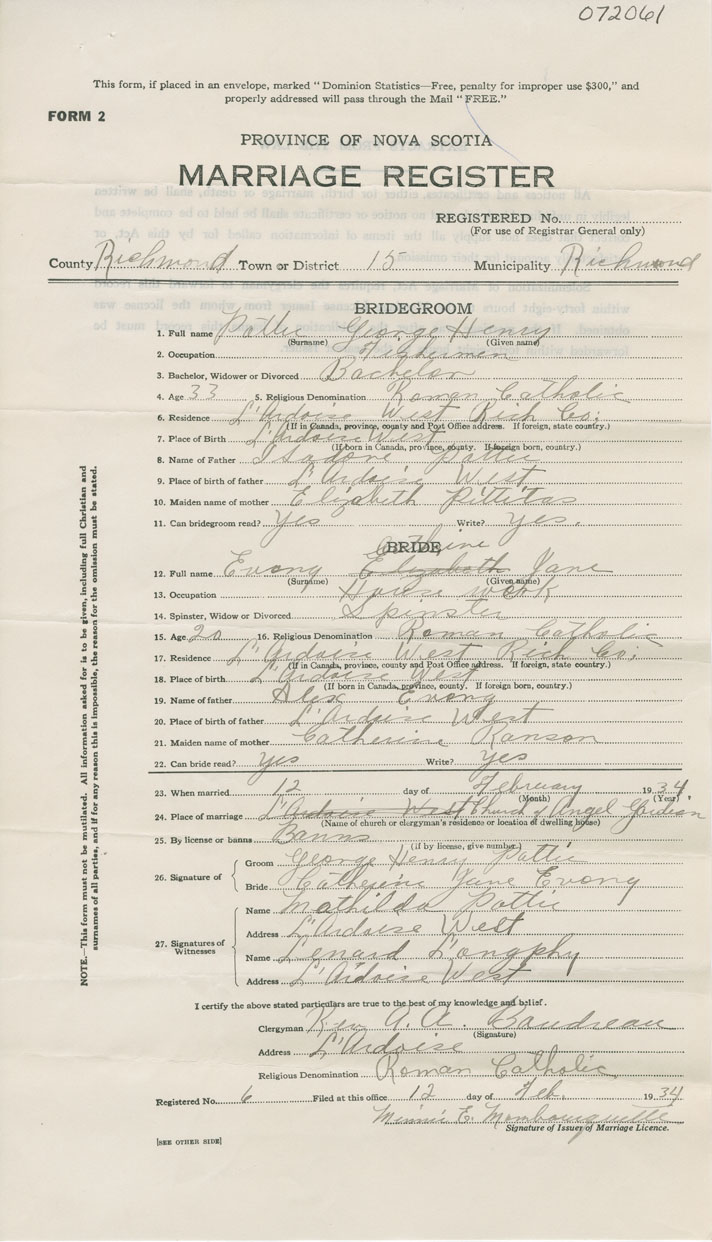 072061
This form, if placed in an envelope, marked "Dominion Statistics—Free, penalty for improper use $300," and
properly addressed will pass through the Mail "FREE."
FORM 2
PROVINCE OF NOVA SCOTIA
MARRIAGE REGISTER
REGISTERED No.
(For use of Registrar General only)
County Richmond Town or District 15 Municipality Richmond
BRIDEGROOM
1. Full name Pottie George Henry
(Surname) (Given name)
2. Occupation Fishermen
3. Bachelor, Widower or Divorced Bachelor
4. Age 33 5. Religious Denomination Roman Catholic
6. Residence L'Ardoise West Rich Co:
(If in Canada, province, county and Post Office address. If foreign, state country.)
7. Place of Birth L'Ardoise West
(If born in Canada, province, county. If foreign born, country.)
8. Name of Father Isadore Pottie
9. Place of birth of father L'Ardoise West
10. Maiden name of mother Elizabeth Pittitas
11. Can bridegroom read? Yes Write? Yes.
BRIDE
12. Full name Evong Elizabeth Jane
(Surname) (Given name)
13. Occupation House work
14. Spinster, Widow or Divorced Spinster
15. Age 20 16. Religious Denomination Roman Catholic
17. Residence L'Ardoise West Rich Co:
(If in Canada, province, county and Post Office address. If foreign, state country.)
18. Place of birth L'Ardoise West
(If born in Canada, province, county. If foreign born, country.)
19. Name of father Alex Evong
20. Place of birth of father L'Ardoise West
21. Maiden name of mother Catherine Ranson
22. Can bride read? Yes Write? Yes
23. When married 12 day of February 1934
(Month) (Year)
24. Place of marriage L'Ardoise West Church of Angel Gardian
(Name of church or clergyman's residence or location of dwelling house)
25. By license or banns Banns
(if by license, give number)
26. Signature of
Groom George Henry Pottie
Bride Catherine Jane Evong
27. Signatures of Witnesses
Name Mathilda Pottie
Address L'Ardoise West
Name Lenard Longphy
Address L'Ardoise West
I certify the above stated particulars are true to the best of my knowledge and belief.
Clergyman Rev A. A. Boudreau
(Signature)
Address L'Ardoise
Religious Denomination Roman Catholic
Registered No. 6 Filed at this office 12 day of Feb. 1934
Minnie E. Mombourquette
Signature of Issuer of Marriage Licence.
[SEE OTHER SIDE]
NOTE.—This form must not be mutilated. All information asked for is to be given, including full Christian and
surnames of all parties, and if for any reason this is impossible, the reason for the omission must be stated.